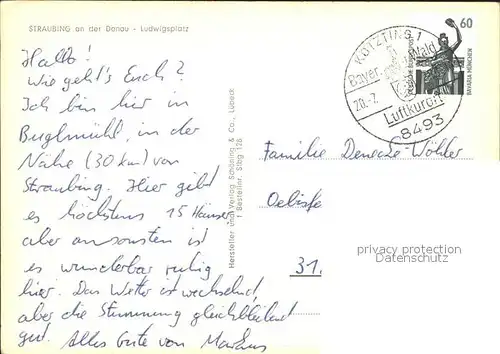 STRAUBING an der Donau - Ludwigsplatz
Hallo!
Wie geht's Euch?
Ich bin hier in
Buglmühl, in der
Nähe (30 km) von
Straubing. Hier gibt
es höchstens 15 Häuser
aber ansonsten ist
es wunderbar ruhig
hier. Das Wetter ist wechselnd,
aber die Stimmung gleichbleibend
gut. Alles Gute von Markus
Hersteller und Verlag Schöning & Co., Lübeck
Bestellnr. Stbg 128
KÖTZTING 1
Bayer. Wald
20.-7.
Luftkurort
8493
60
Deutsche Bundespost
BAVARIA MÜNCHEN
Familie Denecke-Wöhler
31.
privacy protection
Datenschutz